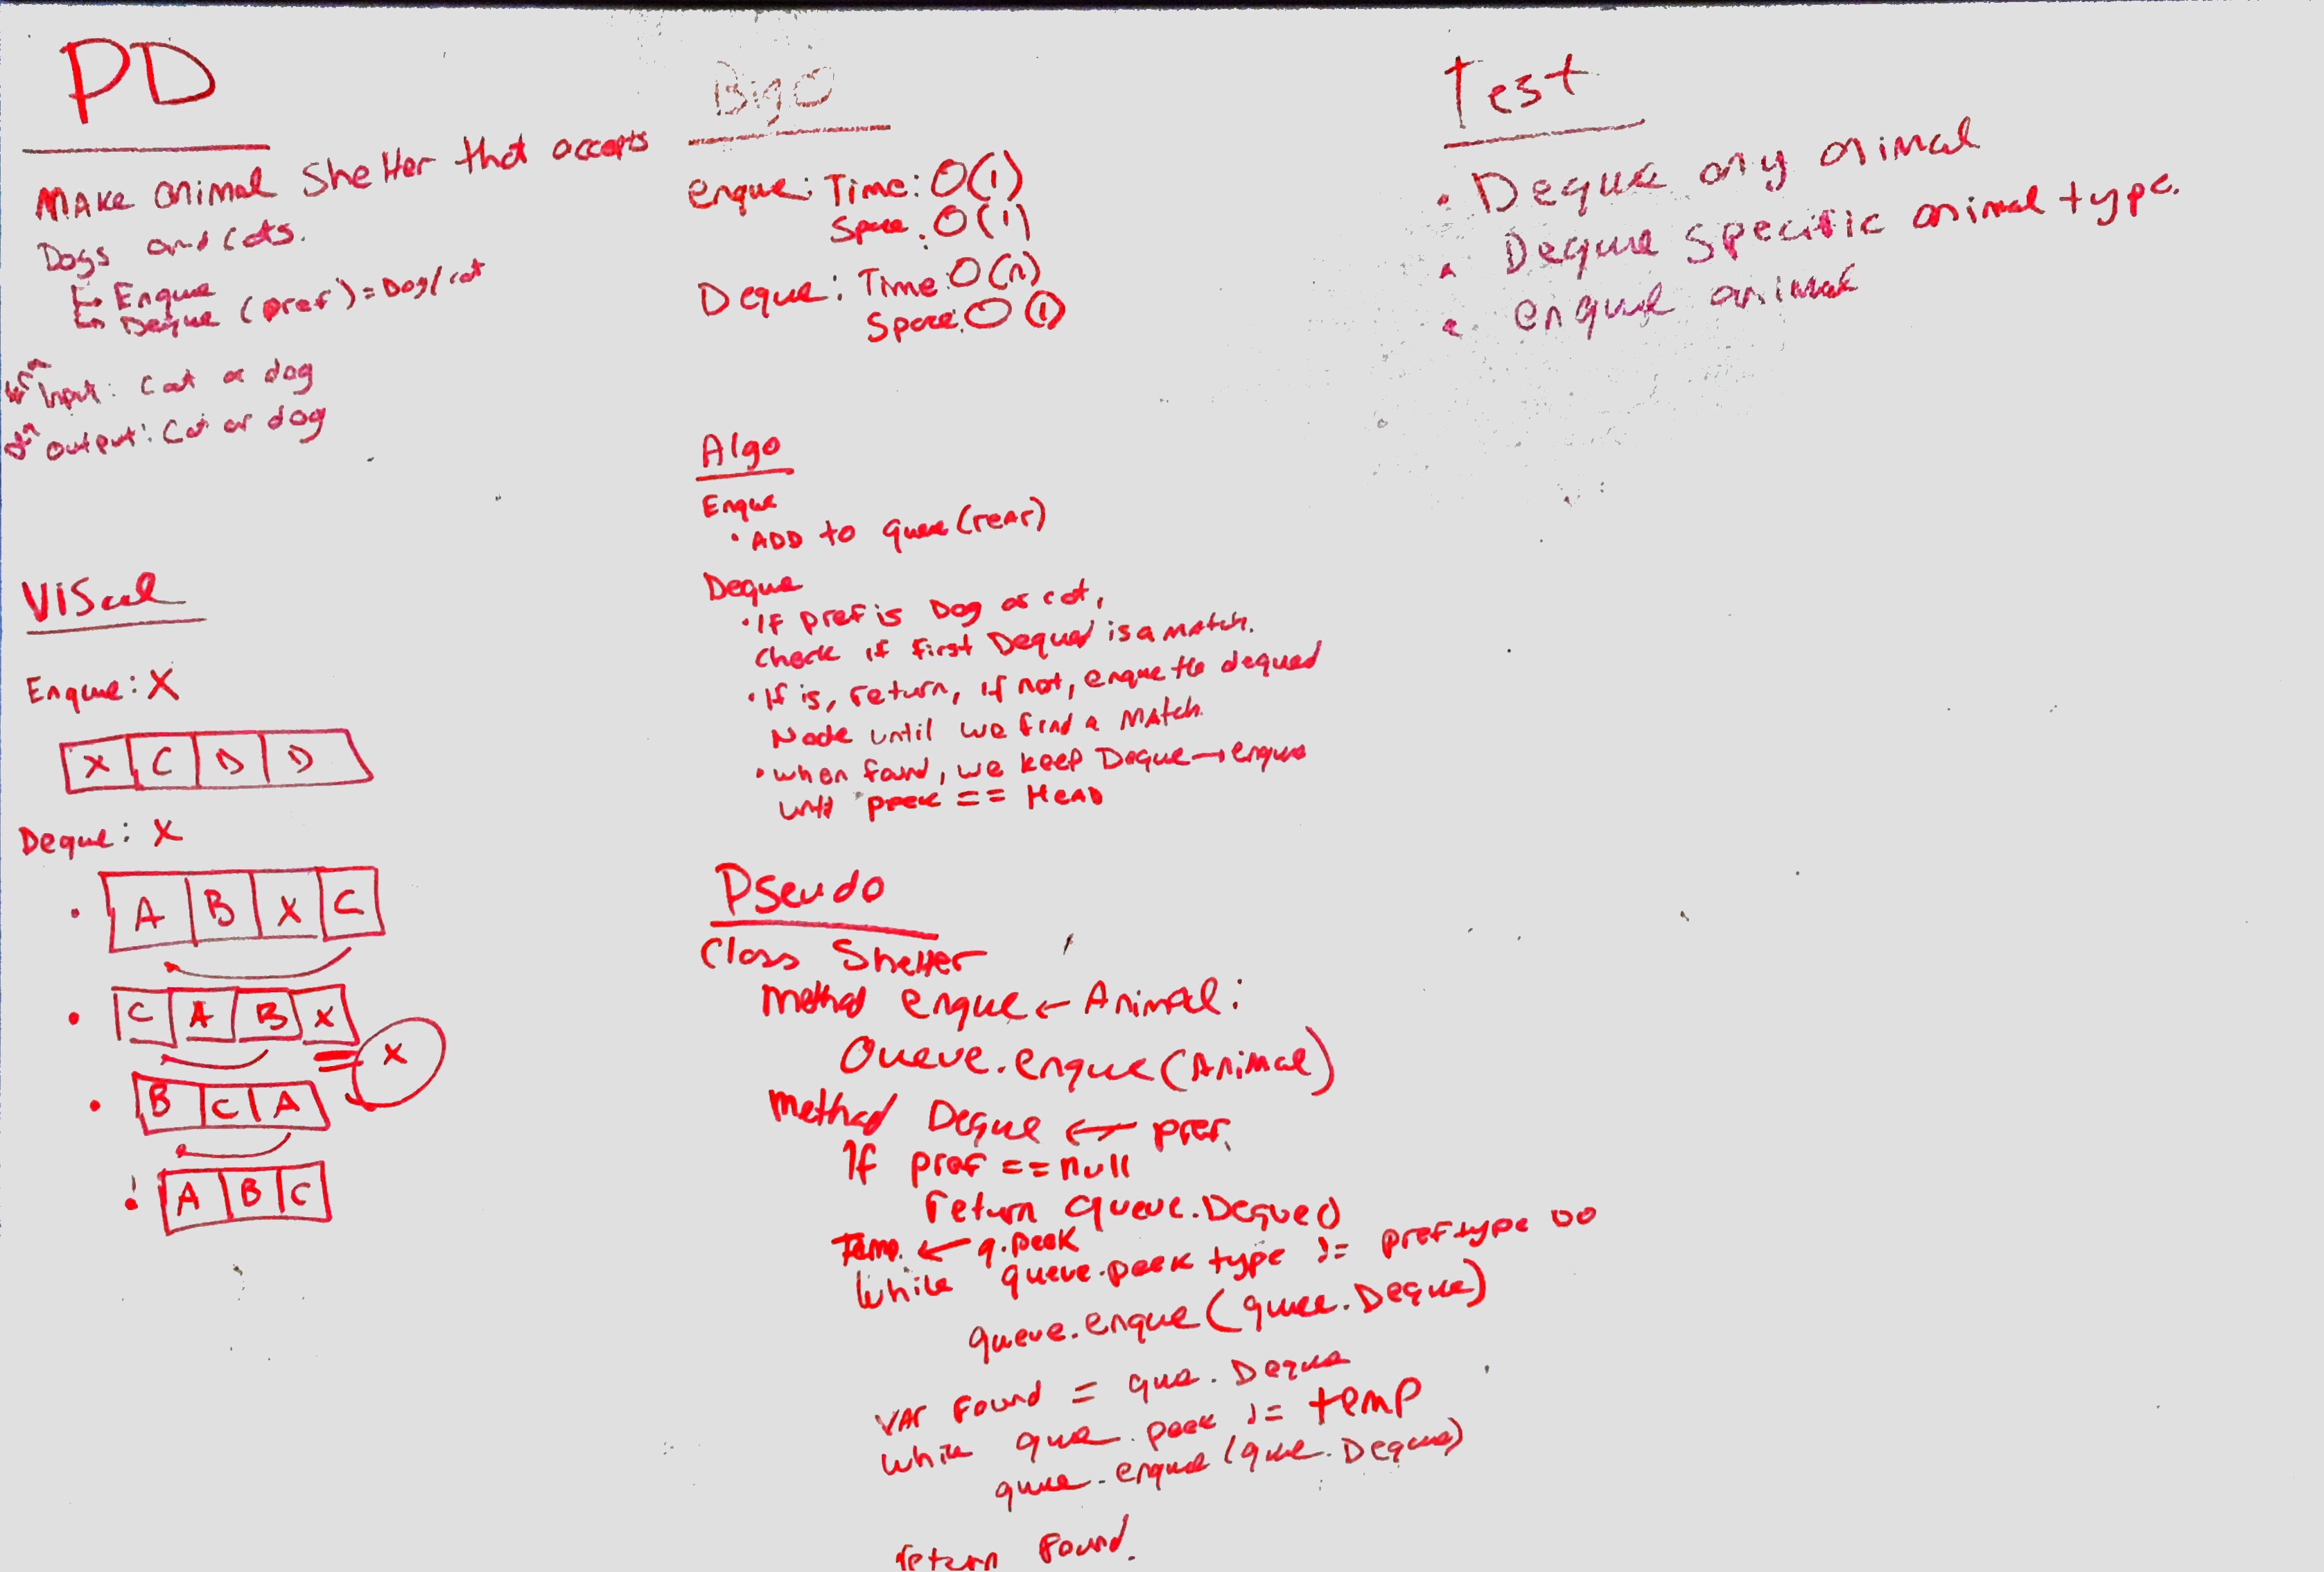 PD
Make animal Shelter that accepts
Dogs and Cats.
Enque
Deque (pref) = Dog/cat
Input: Cat or dog
output: Cat or dog
Visual
Enque: X
X C D D
Deque: X
A B X C
C A B X
X
B C A
A B C
BigO
enque: Time: O(1)
Space: O(1)
Deque: Time: O(n)
Space: O(1)
Algo
Enque
• ADD to queue (rear)
Deque
• If pref is Dog or cat,
check if first Dequed is a match.
• If is, return, if not, enque the dequed
Node until we find a match.
• when found, we keep Deque → enque
until peek == Head
Pseudo
Class Shelter
Method enque ← Animal:
Queue.enque(Animal)
Method Deque ← pref.
If pref == null
return queue.Deque()
Temp. ← q.peek
While queue.peek type != pref type DO
queue.enque(queue.Deque)
VAR Found = que.Deque
while que.peek != temp
que.enque(que.Deque)
return Found.
Test
• Deque any animal
• Deque Specific animal type.
• enque animal